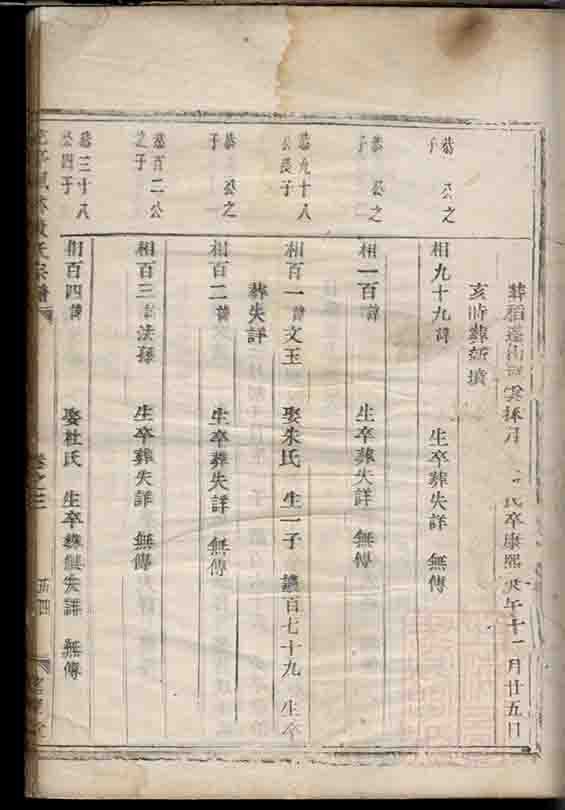 葬稻蓬山 雲孫 月 氏卒康熙庚午十一月廿五日
亥時葬新墳
恭 公之子
相九十九諱 生卒葬失詳 無傳
恭 公之子
相一百諱 生卒葬失詳 無傳
恭九十八公長子
相百一諱文玉 娶朱氏 生一子 讓百七十九 生卒
葬失詳
恭 公之子
相百二諱 生卒葬失詳 無傳
恭百二公之子
相百三諱法孫 生卒葬失詳 無傳
恭三十八公四子
相百四諱 娶杜氏 生卒葬俱失詳 無傳
氏宗譜 卷之三